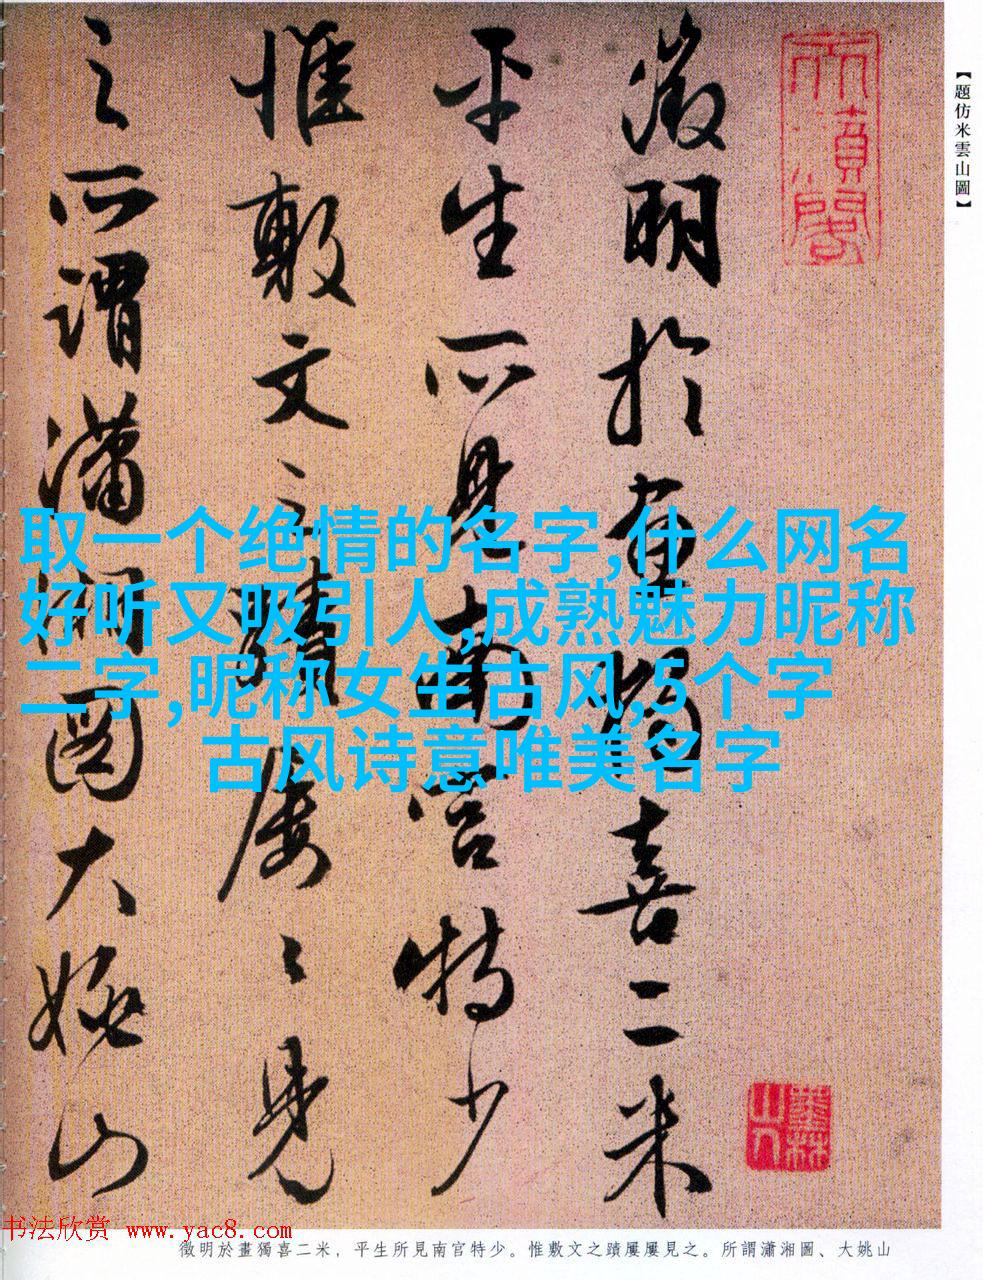 【題仿米雲山圖】
竹漬閣
徵明於畫獨喜二米
平生所見南宮特少
惟敷文之蹟屢〻見
之所謂瀟湘圖大姚山
取一个绝情的名字,什么网名
好听又吸引人,成熟魅力昵称
二字,昵称女生古风,5个字
古风诗意唯美名字
书法欣赏 www.yac8.com
徵明於畫獨喜二米，平生所見南宮特少。惟敷文之蹟屢屢見之。所謂瀟湘圖、大姚山